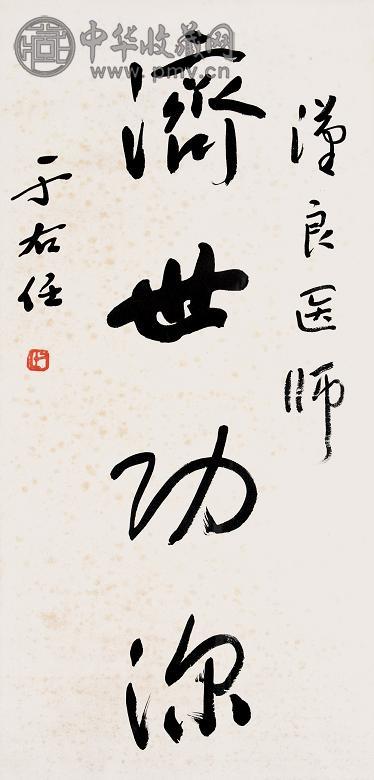 中华收藏网
www.pmv.cn
漢良医师
濟世功深
于右任